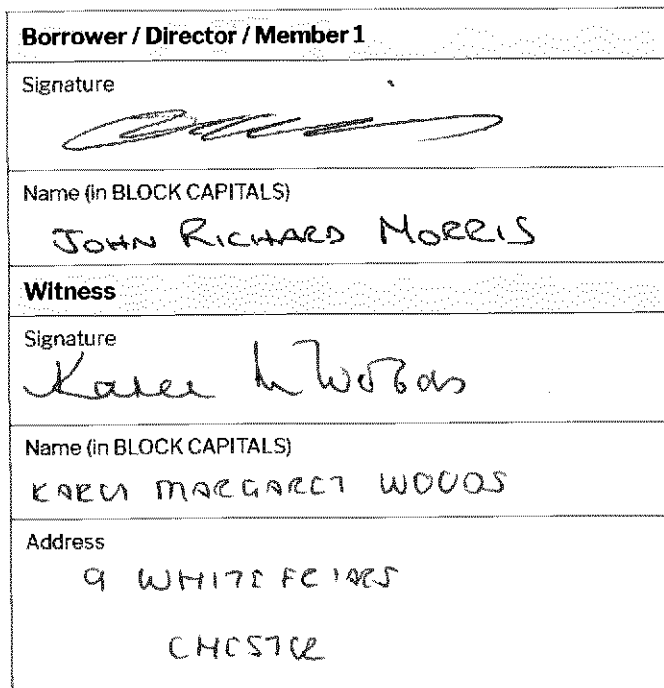 Borrower / Director / Member 1
Signature
Name (in BLOCK CAPITALS)
JOHN RICHARD MORRIS
Witness
Signature
Karen M Woods
Name (in BLOCK CAPITALS)
KAREN MARGARET WOODS
Address
9 WHITEFRIARS
CHESTER